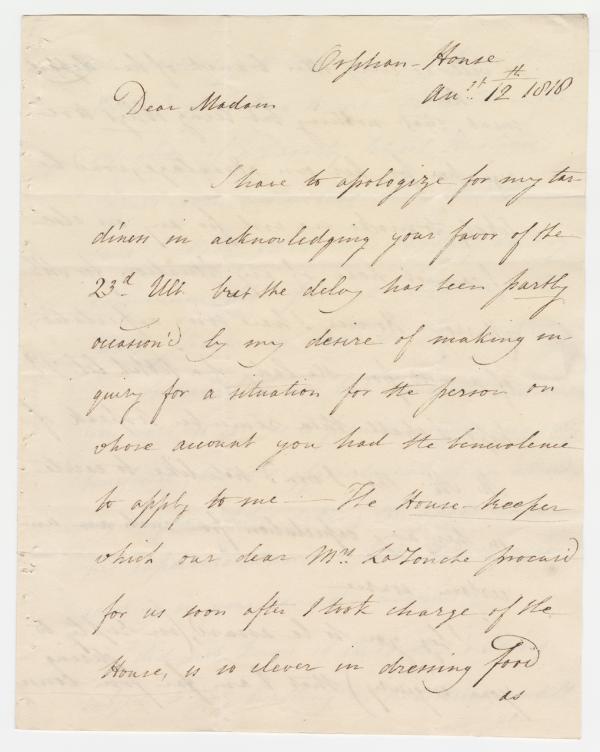 Orphan-House
Au:st 12th 1818
Dear Madam
I have to apologize for my tar-
diness in acknowledging your favor of the
23d Ult. but the delay has been partly
occasion'd by my desire of making in-
quiry for a situation for the person on
whose account you had the benevolence
to apply to me — The House-keeper
which our dear Mrs. LaTouche procur'd
for us soon after I took charge of the
House, is so clever in dressing food
as